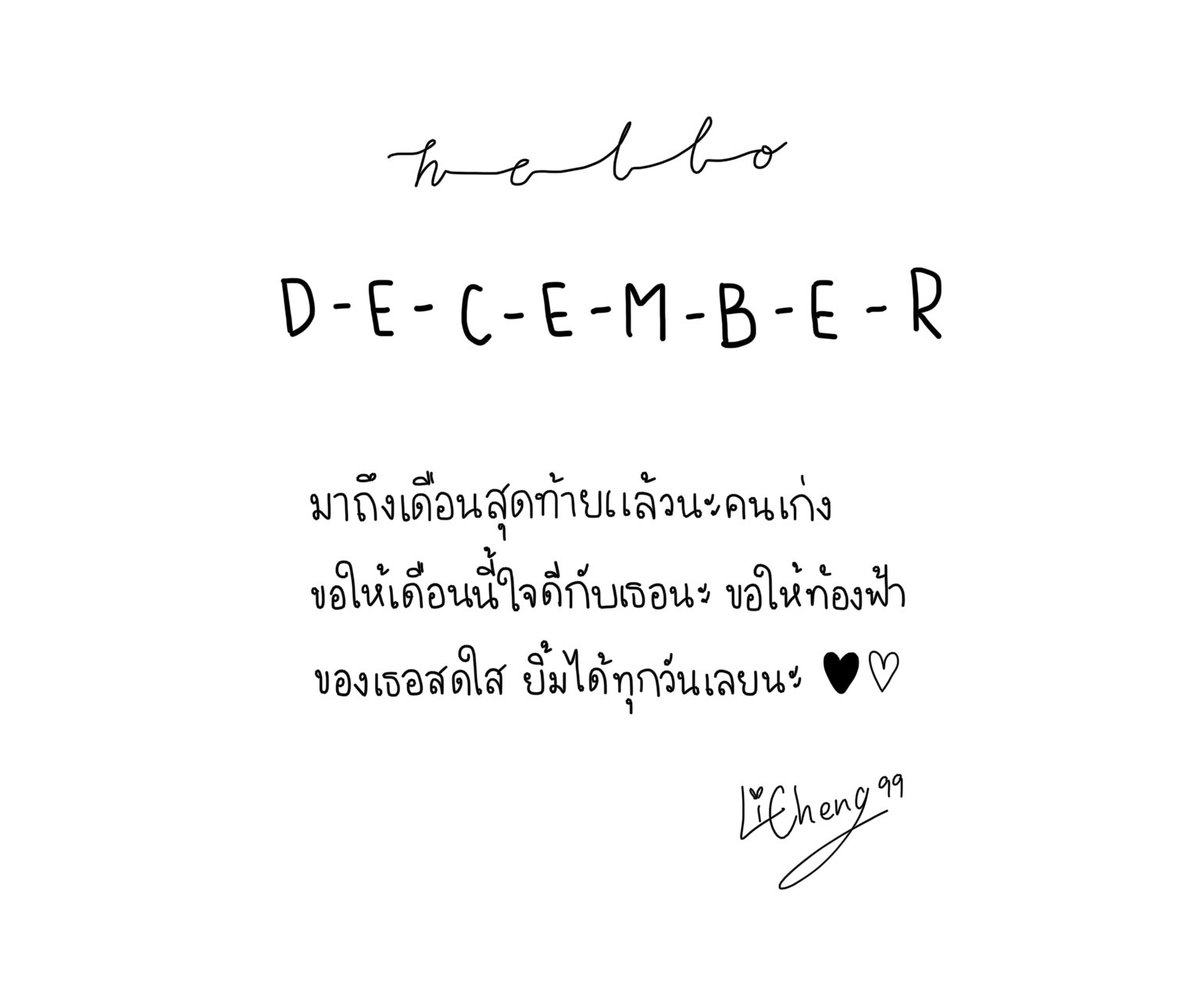 hello
D-E-C-E-M-B-E-R
มาถึงเดือนสุดท้ายแล้วนะคนเก่ง
ขอให้เดือนนี้ใจดีกับเธอนะ ขอให้ท้องฟ้า
ของเธอสดใส ยิ้มได้ทุกวันเลยนะ ♥♡
LiCheng99